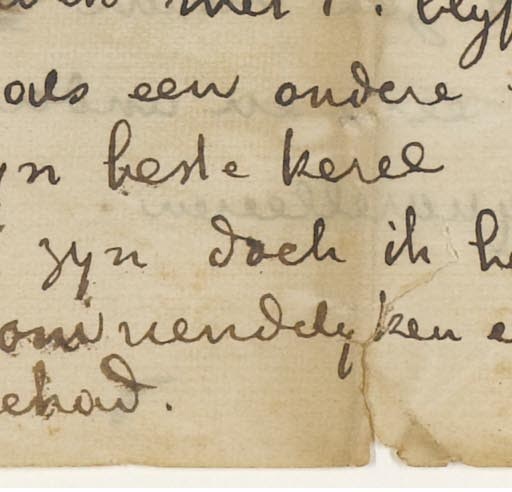 met . blyf
als een andere
yn beste kerel
zyn doch ik he
omvriendelyken e
ehad.